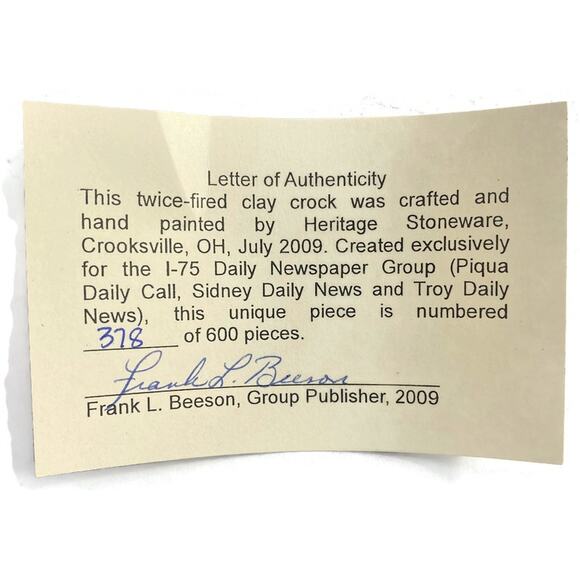 Letter of Authenticity
This twice-fired clay crock was crafted and
hand painted by Heritage Stoneware,
Crooksville, OH, July 2009. Created exclusively
for the I-75 Daily Newspaper Group (Piqua
Daily Call, Sidney Daily News and Troy Daily
News), this unique piece is numbered
378 of 600 pieces.
Frank L. Beeson
Frank L. Beeson, Group Publisher, 2009